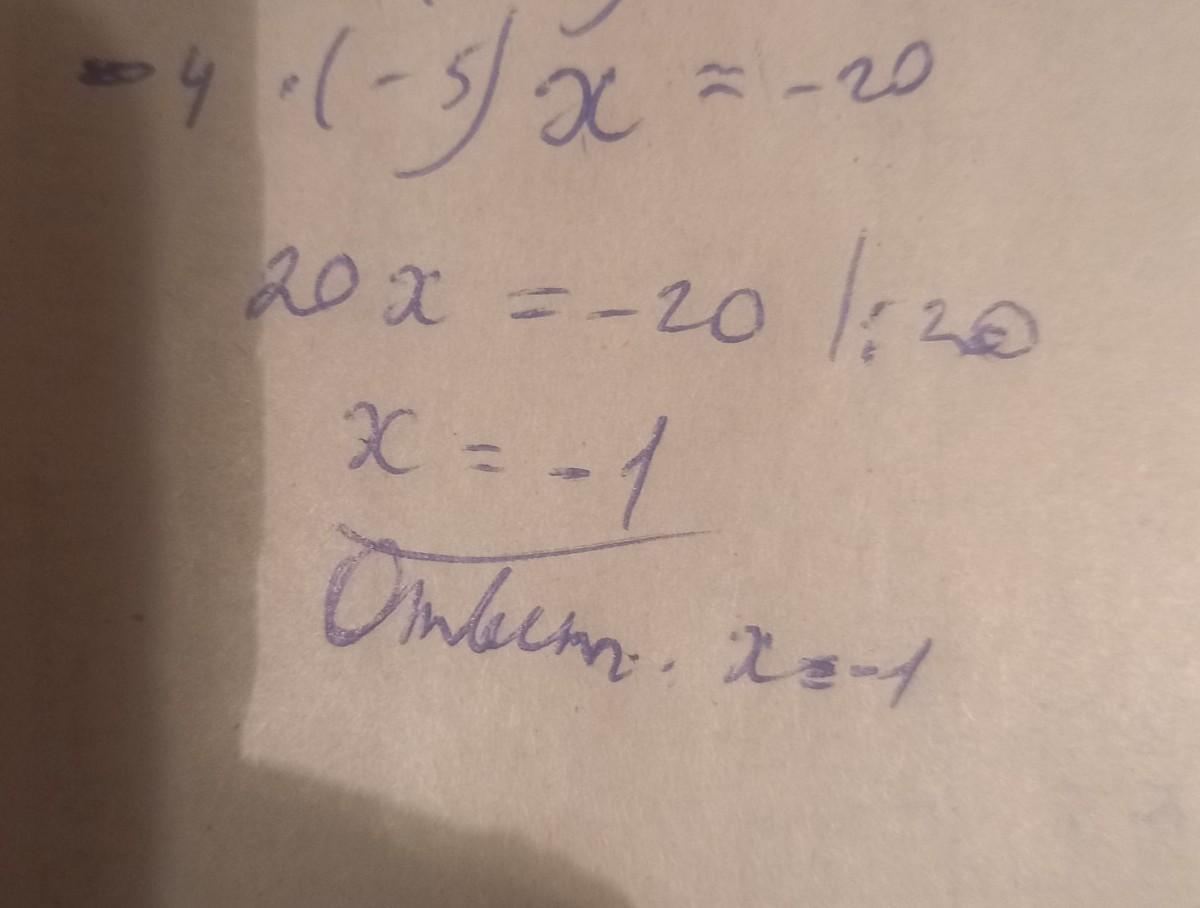 -4 · (-5) x = -20
20x = -20 |: 20
x = -1
Ответ: x = -1